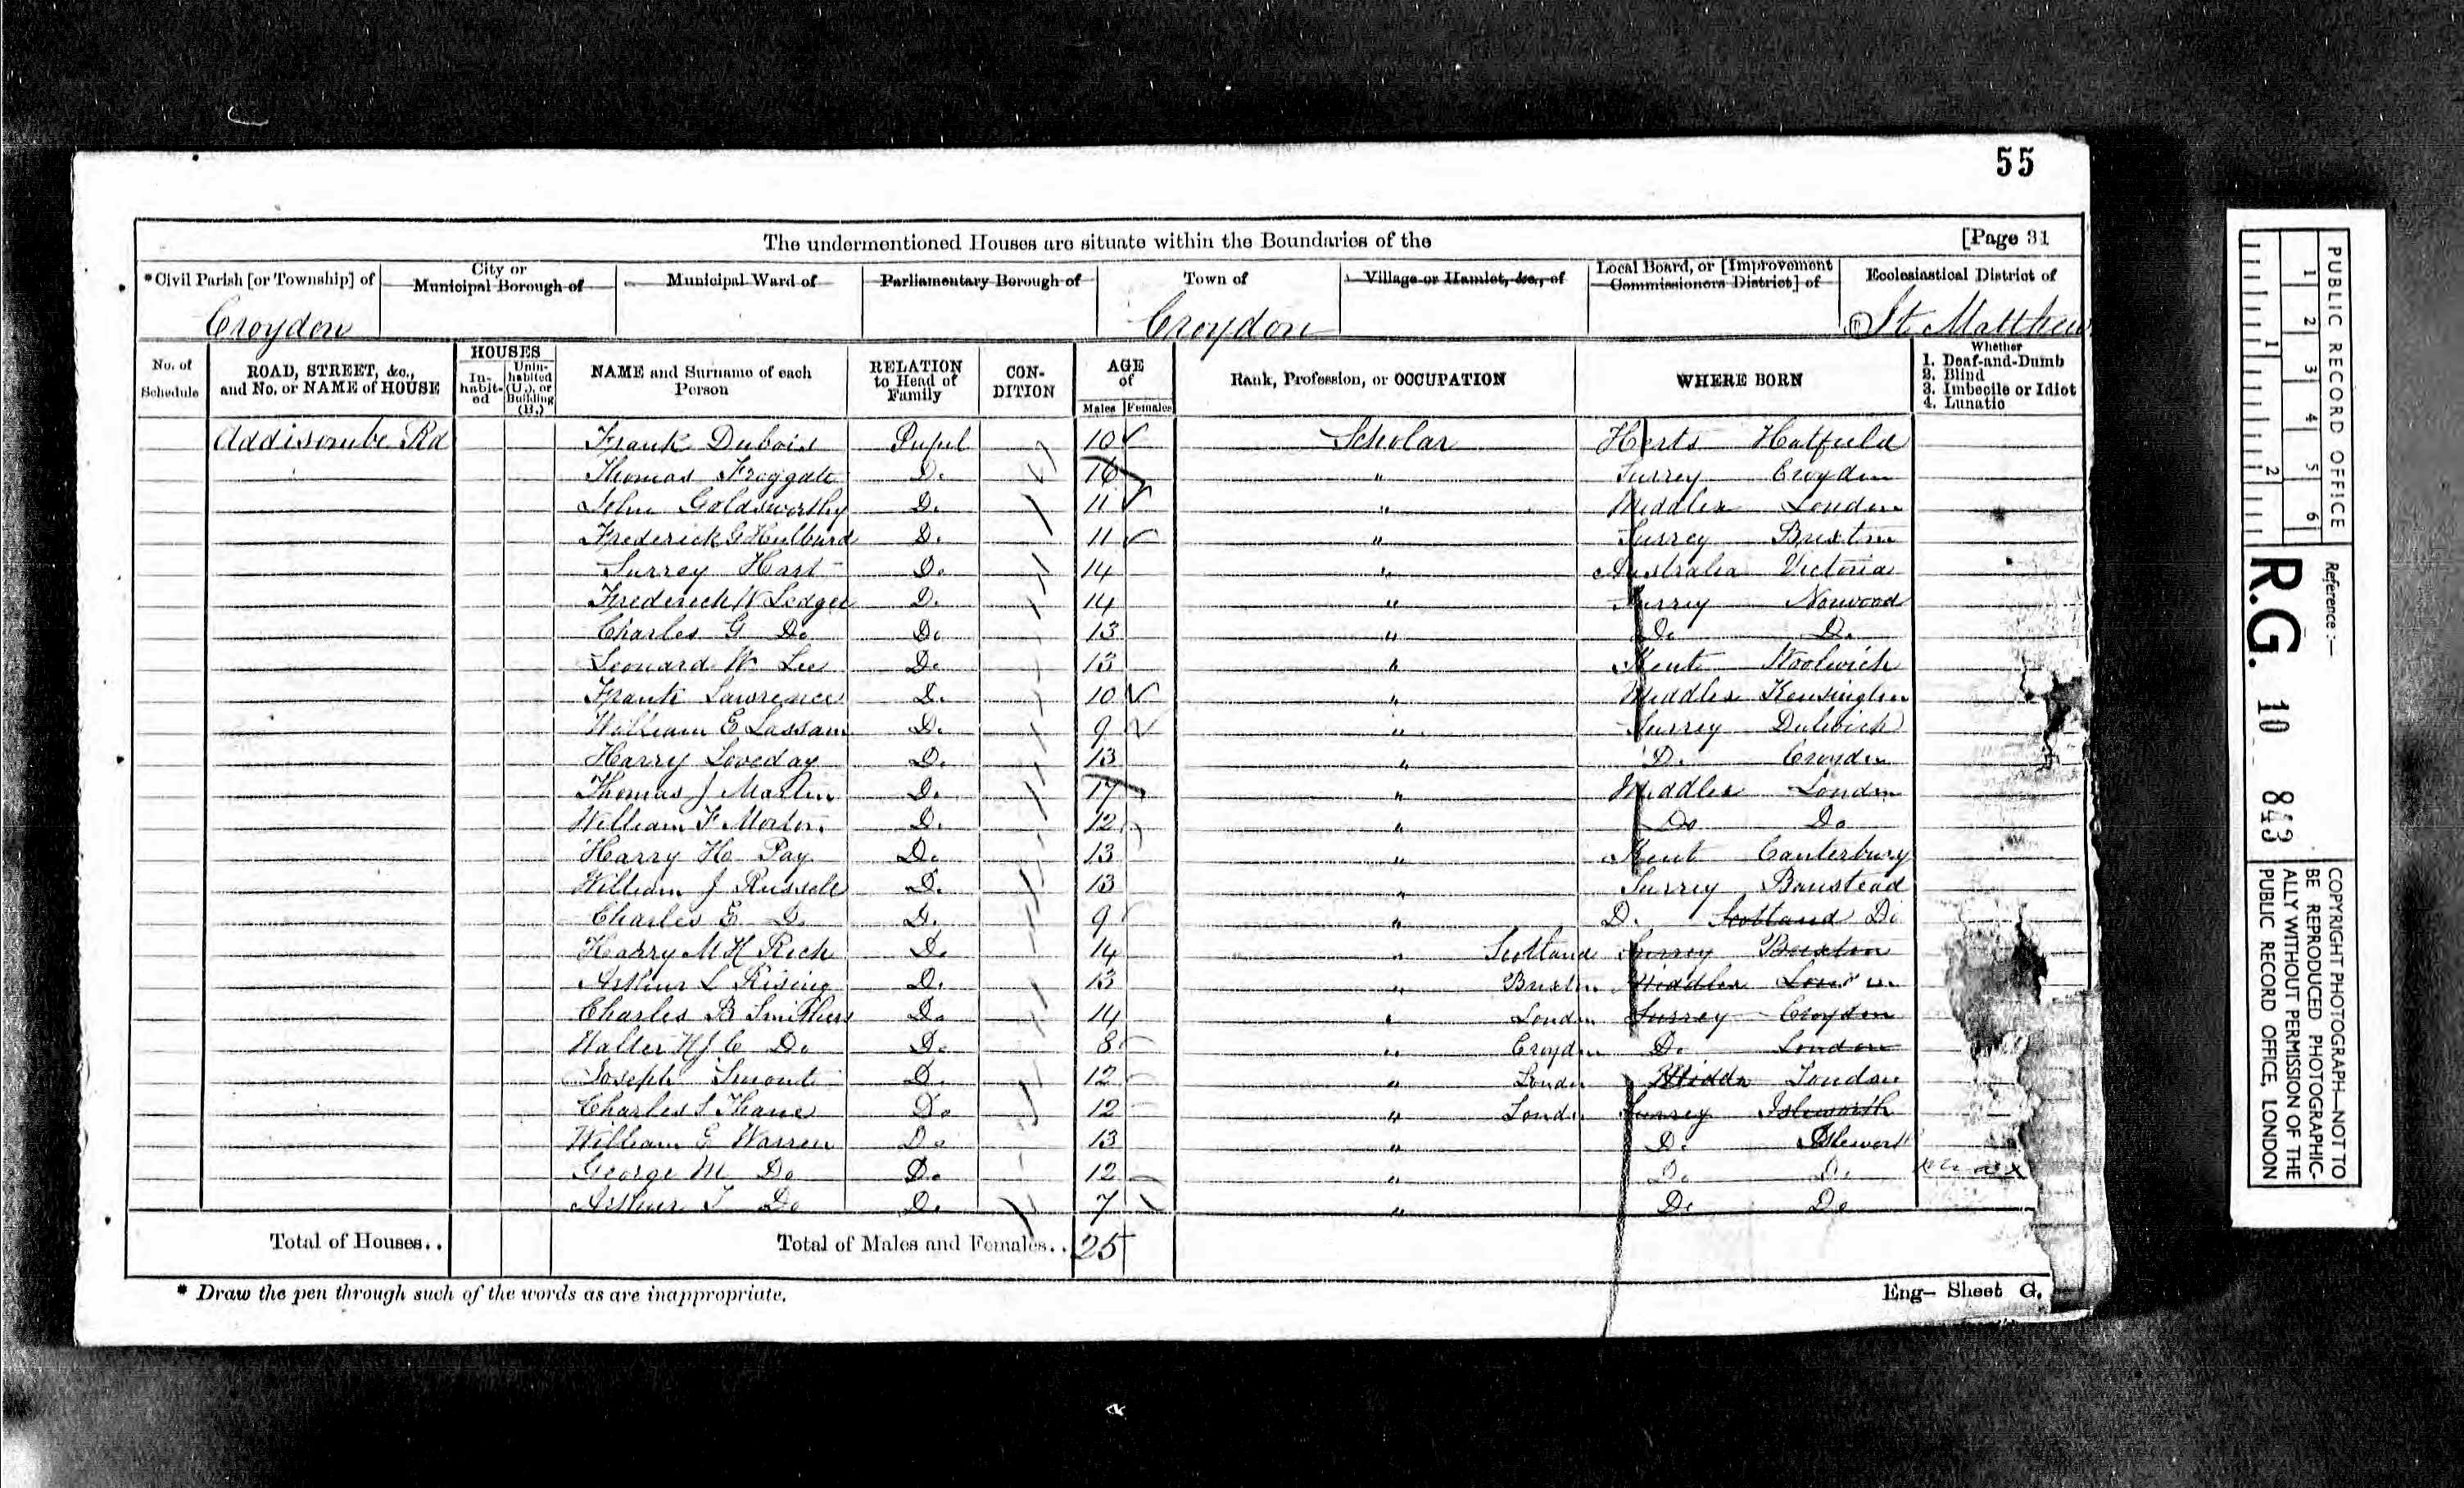 55
The undermentioned Houses are situate within the Boundaries of the [Page 31
*Civil Parish [or Township] of City or Municipal Borough of Municipal Ward of Parliamentary Borough of Town of Village or Hamlet, &c., of Local Board, or [Improvement Commissioners District] of Ecclesiastical District of
Croydon Croydon St. Matthew
No. of Schedule ROAD, STREET, &c., and No. or NAME of HOUSE HOUSES In-habit-ed Unin-habited (U.), or Building (B.) NAME and Surname of each Person RELATION to Head of Family CON-DITION AGE of Males Females Rank, Profession, or OCCUPATION WHERE BORN Whether 1. Deaf-and-Dumb 2. Blind 3. Imbecile or Idiot 4. Lunatic
Addiscombe Rd Frank Dubois Pupil 10 Scholar Herts Hatfield
Thomas Froggatt Do 16 " Surrey Croydon
John Goldsworthy Do 11 " Middlex London
Frederick G Hulburd Do 11 " Surrey Brixton
Surrey Hart Do 14 " Australia Victoria
Frederick W Ledger Do 14 " Surrey Norwood
Charles G Do Do 13 " Do Do
Leonard W Lee Do 13 " Kent Woolwich
Frank Lawrence Do 10 " Middlex Kensington
William E Lassam Do 9 " Surrey Dulwich
Harry Loveday Do 13 " Do Croydon
Thomas J Martin Do 17 " Middlex London
William F Do 12 " Do Do
Harry H Pay Do 13 " Kent Canterbury
William J Russell Do 13 " Surrey Banstead
Charles E Do Do 9 " Do Scotland Do
Harry M H Rich Do 14 " Scotland Surrey Brixton
Arthur L Rising Do 13 " Brixton Middlex London
Charles B Smithers Do 14 " London Surrey Croydon
Walter H J C Do Do 8 " Croydon Do London
Joseph Do 12 " London Middx London
Charles S Thane Do 12 " London Surrey Isleworth
William E Warren Do 13 " Do Isleworth
George M Do Do 12 " Do Do
Arthur T Do Do 7 " Do Do
Total of Houses.. Total of Males and Females.. 25
* Draw the pen through such of the words as are inappropriate.
Eng- Sheet G.
PUBLIC RECORD OFFICE
1 2 3 4 5 6
1 2
Reference :—
R.G. 10 843
COPYRIGHT PHOTOGRAPH—NOT TO
BE REPRODUCED PHOTOGRAPHIC-
ALLY WITHOUT PERMISSION OF THE
PUBLIC RECORD OFFICE, LONDON